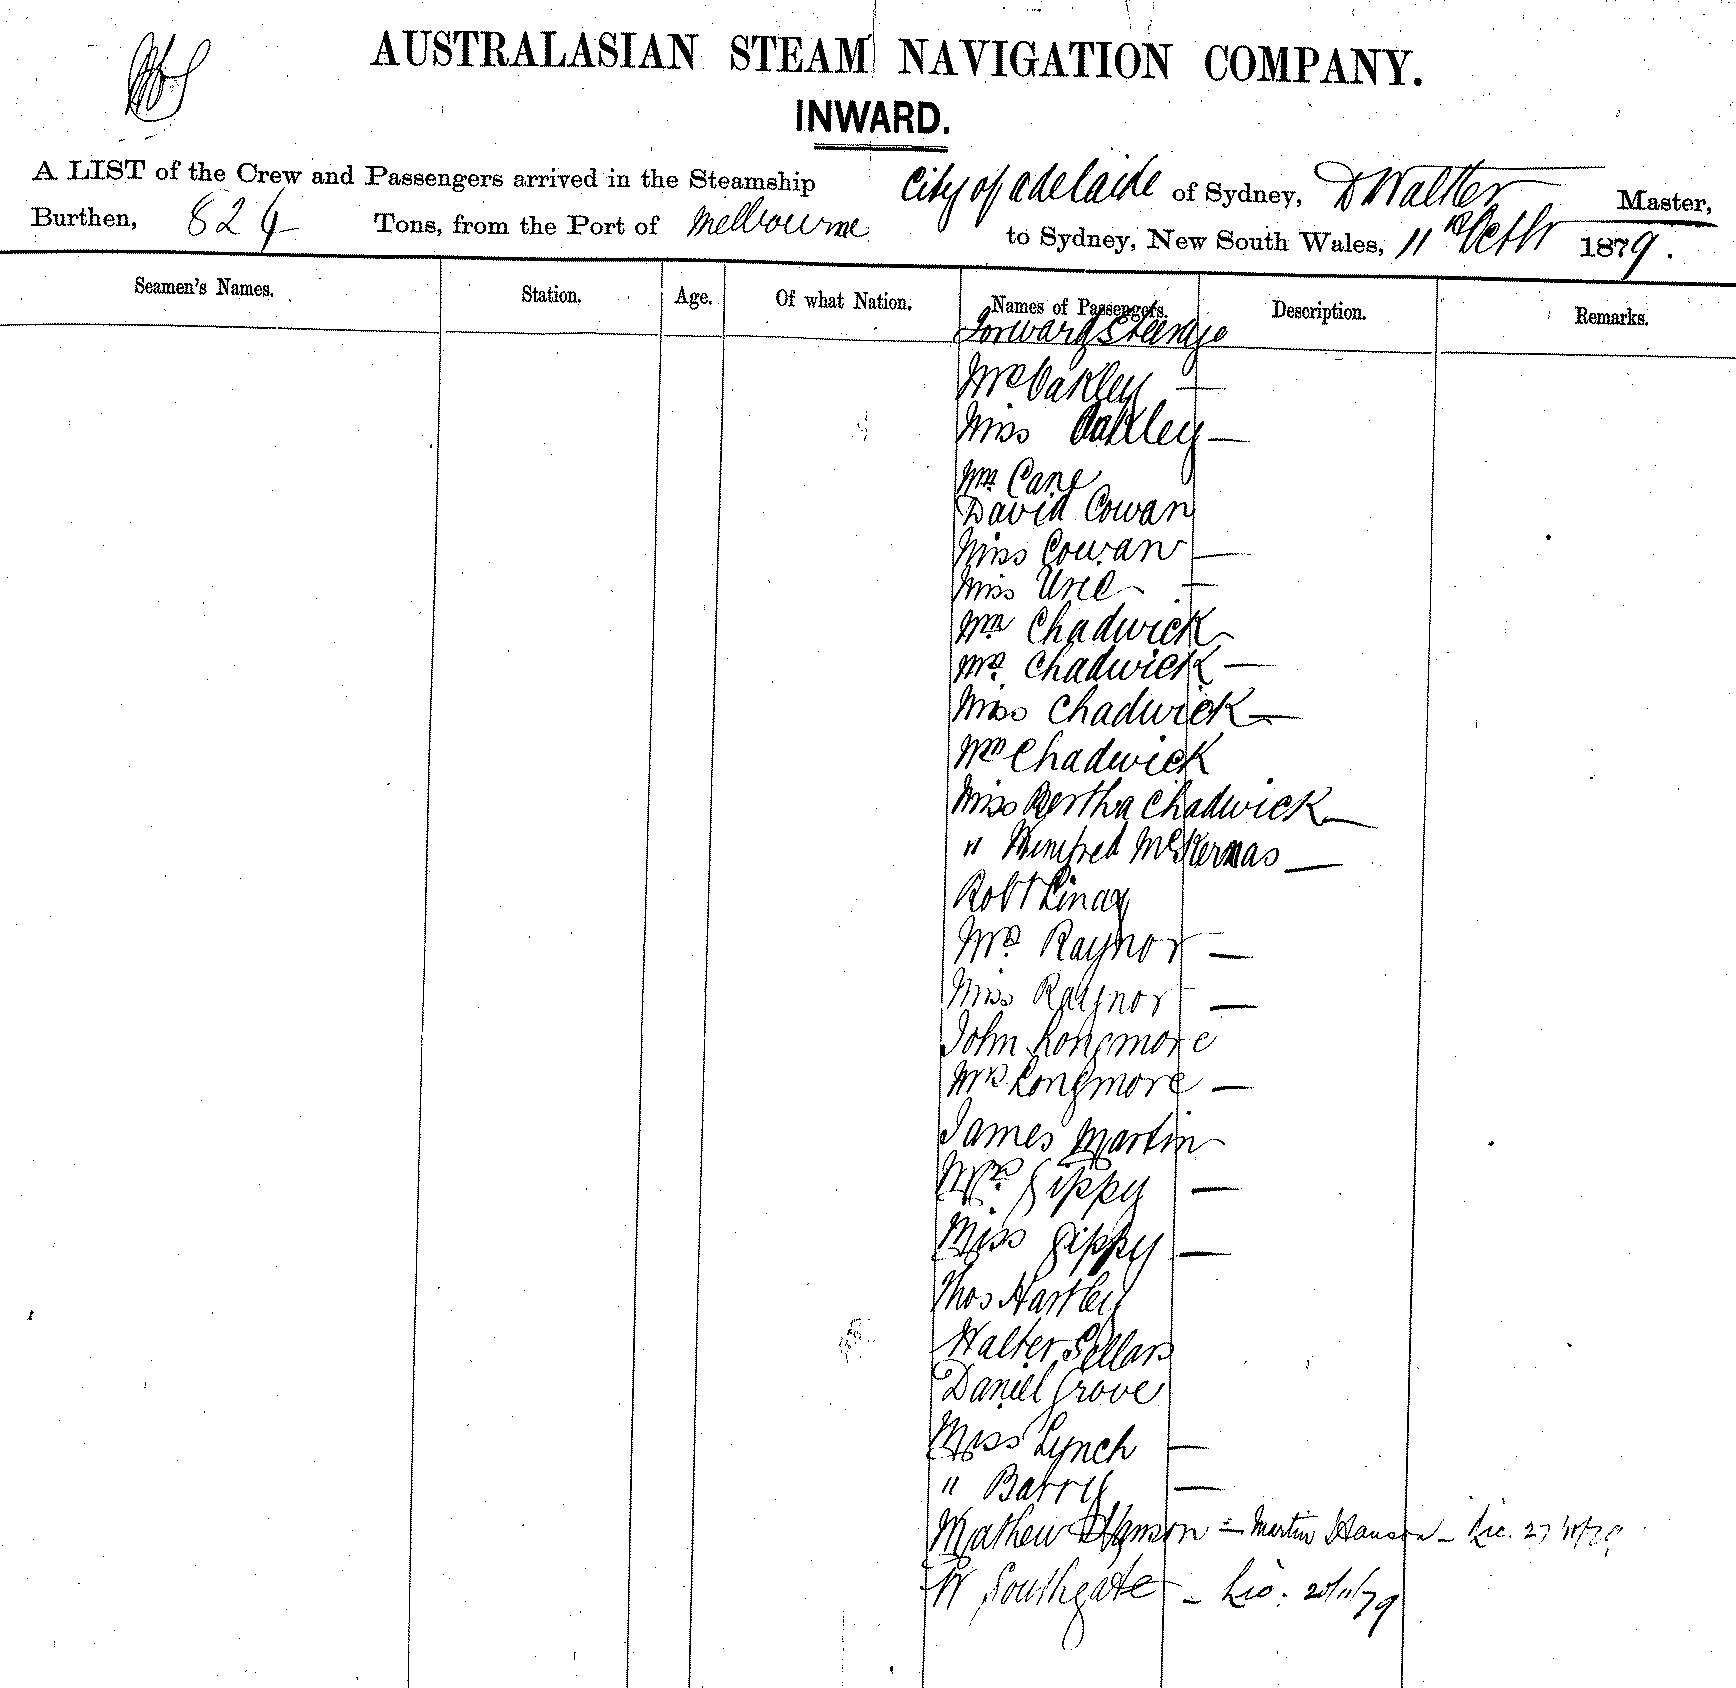 AUSTRALASIAN STEAM NAVIGATION COMPANY.
INWARD.
A LIST of the Crew and Passengers arrived in the Steamship City of Adelaide of Sydney, D Walker Master,
Burthen, 824 Tons, from the Port of Melbourne to Sydney, New South Wales, 11th Octbr 1879.
Seamen's Names. Station. Age. Of what Nation. Names of Passengers. Description. Remarks.
Forward Steerage
Mrs Oakley —
Miss Oakley —
Wm Cane
David Cowan
Miss Cowan —
Miss Urie —
Wm Chadwick
Mrs Chadwick —
Miss Chadwick —
Wm Chadwick
Miss Bertha Chadwick —
" Winifred McKernas —
Robt
Mrs Raynor —
Miss Raynor —
John Longmore
Mrs Longmore —
James Martin
Mrs Gippy —
Miss Gippy —
Thos Hartley
Walter Sellars
Daniel Grove
Miss Lynch —
" Barry —
Mathew Hanson = Martin Hanson – Lic.
W Southgate – Lic: 20/11/79